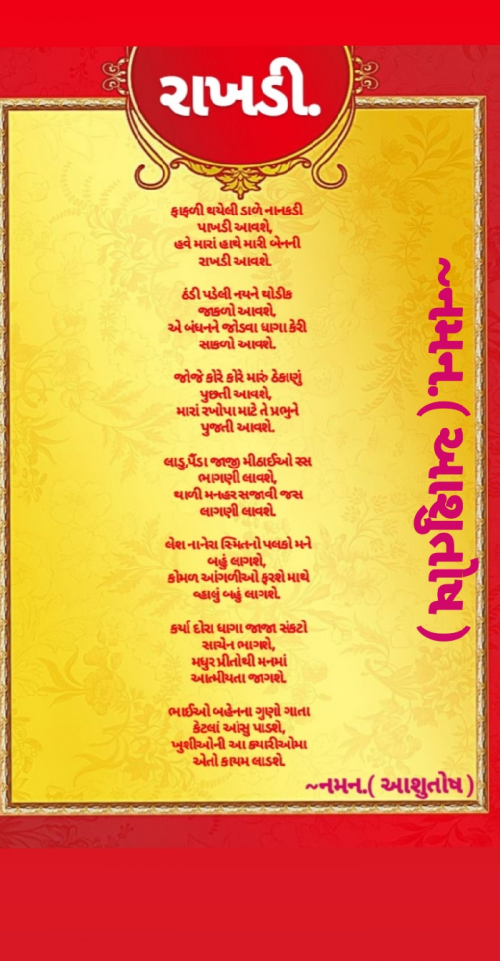 રાખડી.
ફાફળી થયેલી ડાળે નાનકડી
પાખડી આવશે,
હવે મારાં હાથે મારી બેનની
રાખડી આવશે.
ઠંડી પડેલી નયને થોડીક
જાકળો આવશે,
એ બંધનને જોડવા ધાગા કેરી
સાકળો આવશે.
જોજે કોરે કોરે મારું ઠેકાણું
પુછતી આવશે,
મારાં રખોપા માટે તે પ્રભુને
પુજતી આવશે.
લાડુ,પેંડા જાજી મીઠાઈઓ રસ
ભાગણી લાવશે,
થાળી મનહર સજાવી જસ
લાગણી લાવશે.
લેશ નાનેરા સ્મિતનો પલકો મને
બહું લાગશે,
કોમળ આંગળીઓ ફરશે માથે
વ્હાલું બહું લાગશે.
કર્યા દોરા ધાગા જાજા સંકટો
સાચેન ભાગશે,
મધુર પ્રીતોથી મનમાં
આત્મીયતા જાગશે.
ભાઈઓ બહેનના ગુણો ગાતા
કેટલાં આંસુ પાડશે,
ખુશીઓની આ ક્યારીઓમા
એતો કાયમ લાડશે.
~નમન.( આશુતોષ )
~નમન.( આશુતોષ )